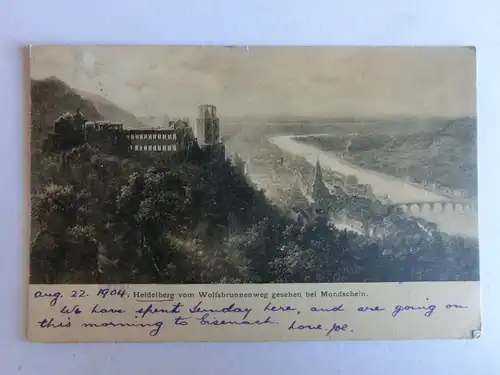 Aug. 22. 1904. Heidelberg vom Wolfsbrunnenweg gesehen bei Mondschein.
We have spent Sunday here, and are going on
this morning to Eisenach. Love. Joe.